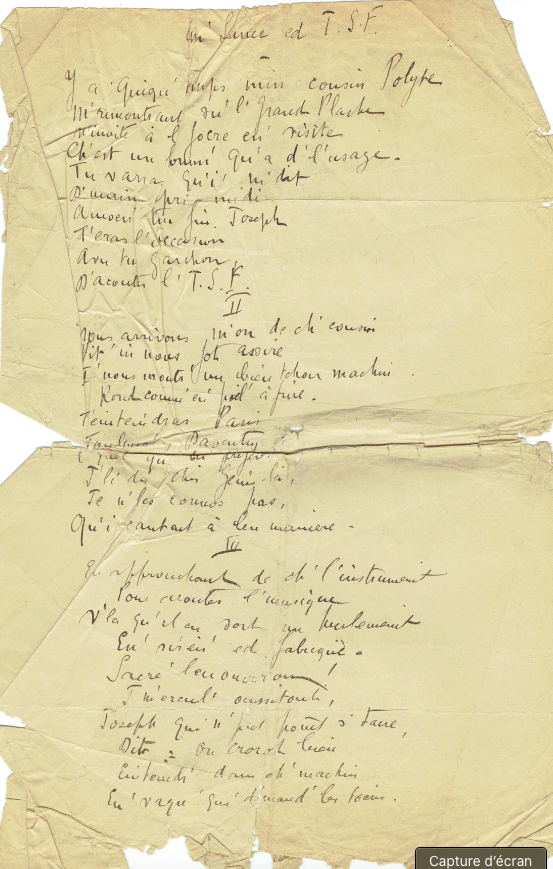 Un' Séance ed T.S.F.
Y a quéqu' temps min cousin Polyte
M'rincontrant su l' Grand Plache
M'invite à l' foere en visite
Ch'est un homm' qu'a d' l'usage.
Tu varra qu'i' m'dit
D'main après midi
Amoen' tin fiu Joseph
T'eras l'occasion
Avu tu garchon,
D'acouter l' T.S.F.
II
Nous arrivons m'on de ch' cousin
Vit' in nous foit assire
I' nous mont' un bieu tchou machin
Rond comm' en poêl' à frire.
T'eintendras Paris
Toulouse, Daventry
J'li dis ches gens là,
Je n'les connos pas,
Qu'i cantant à leu manière.
III
En approuchant de ch' l'instrument
Pour acouter l'musique
V'la qu'il en sort un hurlement
En' sirèn' ed fabrique.
Sacré
J'm'ercul' aussitout,
Joseph qui n' put point s' taire,
Dit : on croroit bien
Entend' dans ch' machin
En' vaque qui d'mand' les toein.